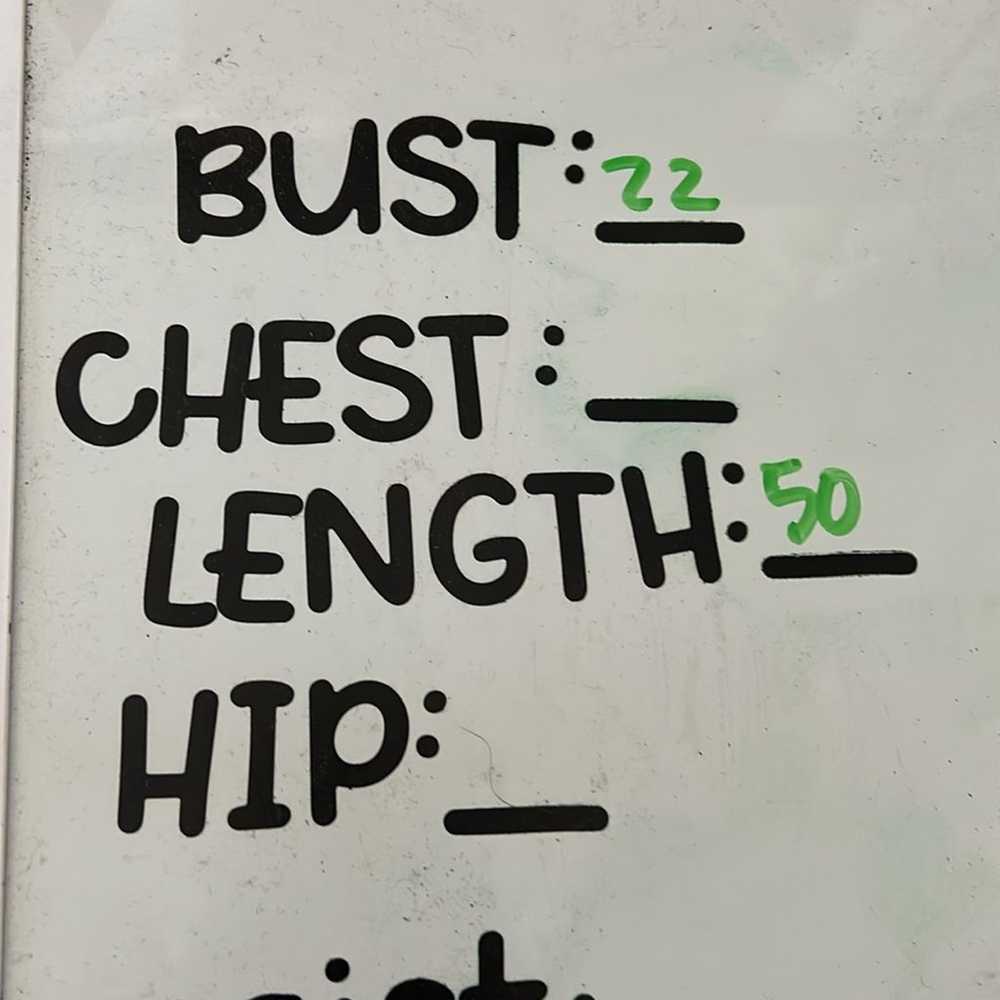 BUST: 22
CHEST:
LENGTH: 50
HIP: